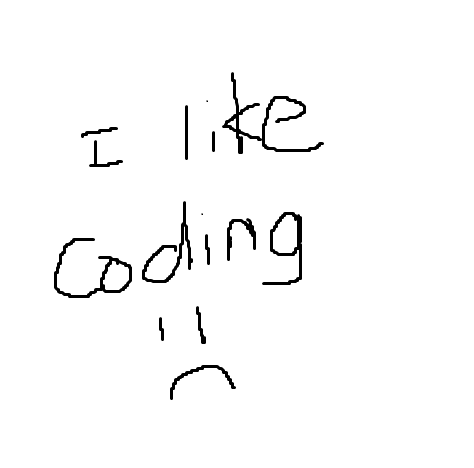 I like
coding